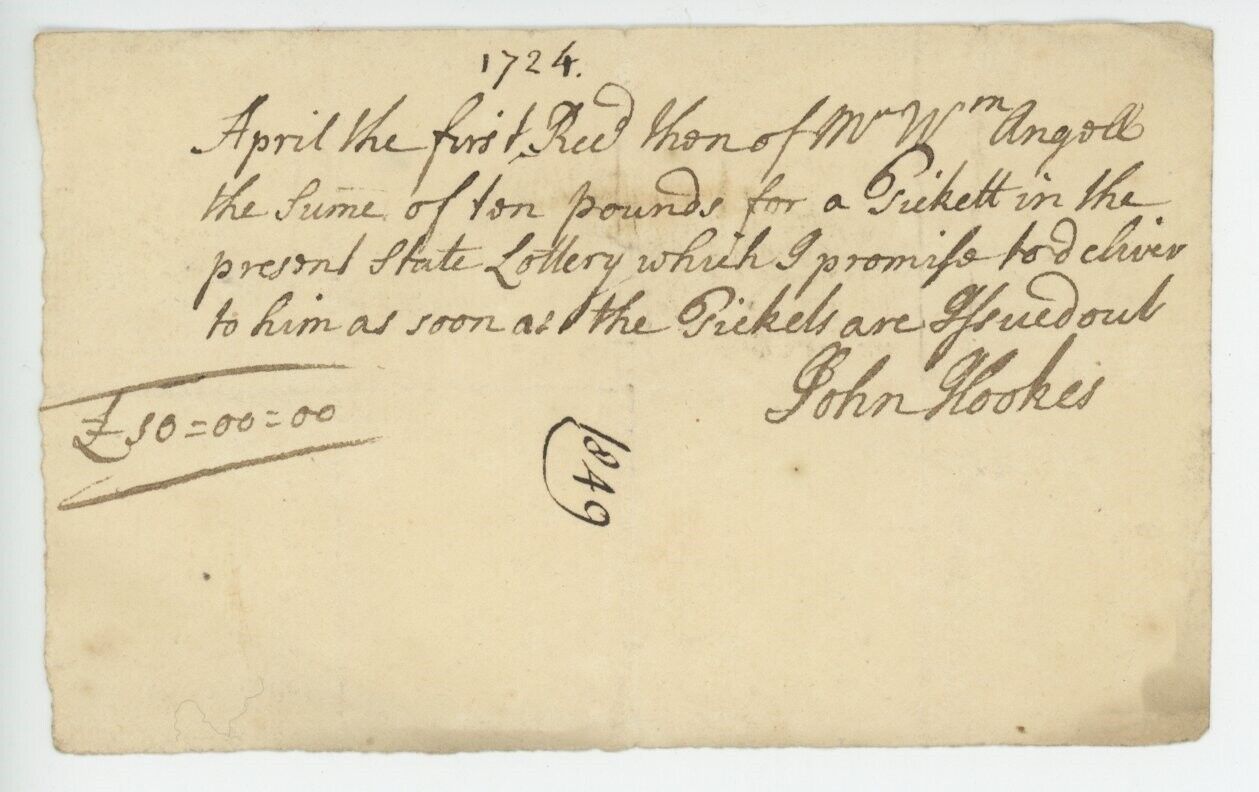 1724.
April the first Recd then of Mr Wm Angell
the Sume of ten pounds for a Tickett in the
present State Lottery which I promise to deliver
to him as soon as the Tickets are Issued out
John Hookes
£10=00=00
1849